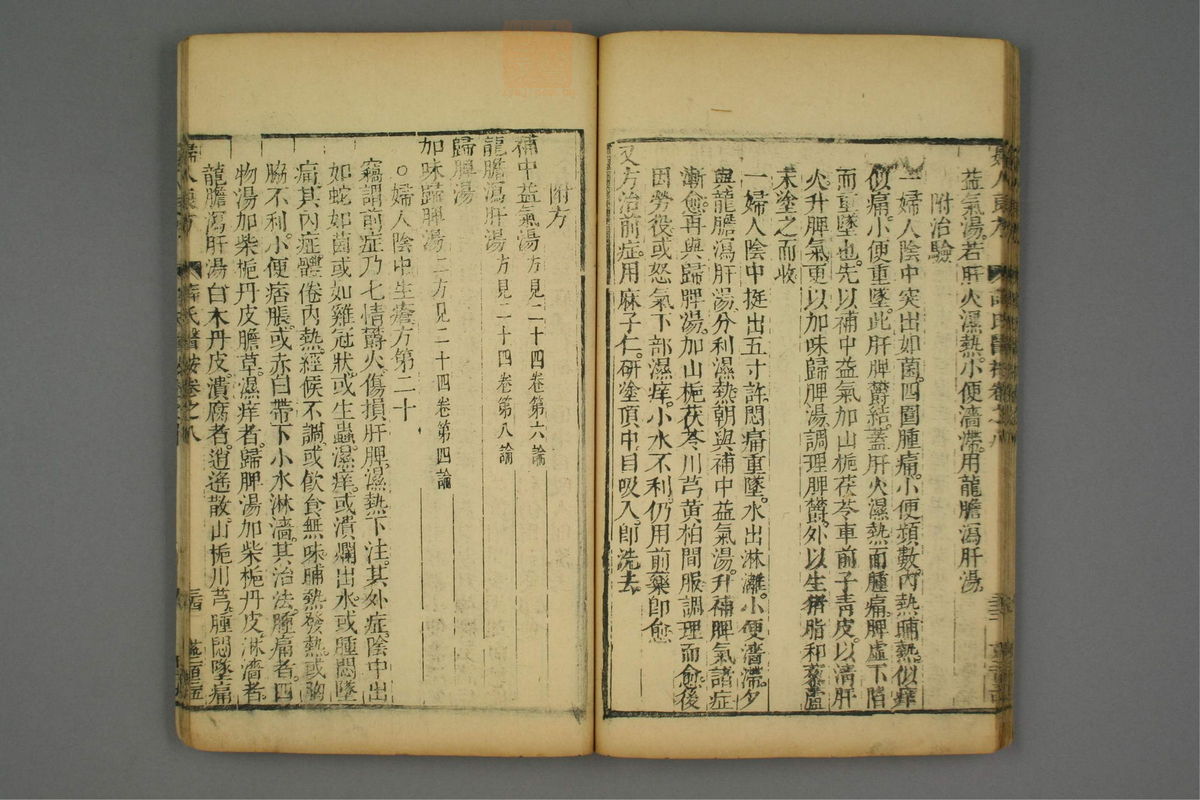 益氣湯若肝火濕熱小便濇滯用龍膽瀉肝湯
附治驗
一婦人陰中突出如菌四圍腫痛小便頻數內熱晡熱似癢
似痛小便重墜此肝脾鬱結蓋肝火濕熱而腫痛脾虛下陷
而重墜也先以補中益氣加山梔茯苓車前子青皮以清肝
火升脾氣更以加味歸脾湯調理脾鬱外以生猪脂和藜蘆
末塗之而收
一婦人陰中挺出五寸許悶痛重墜水出淋漓小便濇滯夕
與龍膽瀉肝湯分利濕熱朝與補中益氣湯升補脾氣諸症
漸愈再與歸脾湯加山梔茯苓川芎黃柏間服調理而愈後
因勞役或怒氣下部濕痒小水不利仍用前藥即愈
又方治前症用麻子仁研塗頂中目吸入即洗去
附方
補中益氣湯方見二十四卷第六論
龍膽瀉肝湯方見二十四卷第八論
歸脾湯
加味歸脾湯二方見二十四卷第四論
○婦人陰中生瘡方第二十
竊謂前症乃七情鬱火傷損肝脾濕熱下注其外症陰中出
如蛇如菌或如雞冠狀或生蟲濕痒或潰爛出水或腫悶墜
痛其內症體倦內熱經候不調或飲食無味晡熱發熱或胸
脇不利小便痞脹或赤白帶下小水淋濇其治法腫痛者四
物湯加柴梔丹皮膽草濕痒者歸脾湯加柴梔丹皮淋濇者
龍膽瀉肝湯白木丹皮潰腐者逍遙散山梔川芎腫悶墜痛
婦人良方 薛氏醫按卷之八